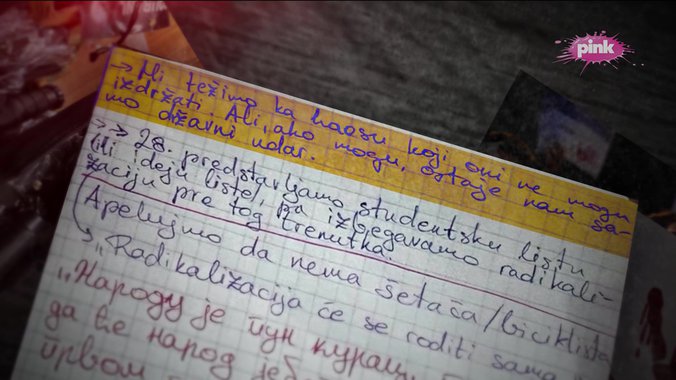 pink
→ Mi težimo ka haosu koji oni ne mogu
izdržati. Ali, ako mogu, ostaje nam sa-
mo državni udar.
→→ 28. predstavljamo studentsku listu
ili ideju liste, pa izbjegavamo radikali-
zaciju pre tog trenutka.
Apelujmo da nema šetača/biciklista
→ „Radikalizacija će se roditi sama
„Народу је пун курац,
да ће народ
првом